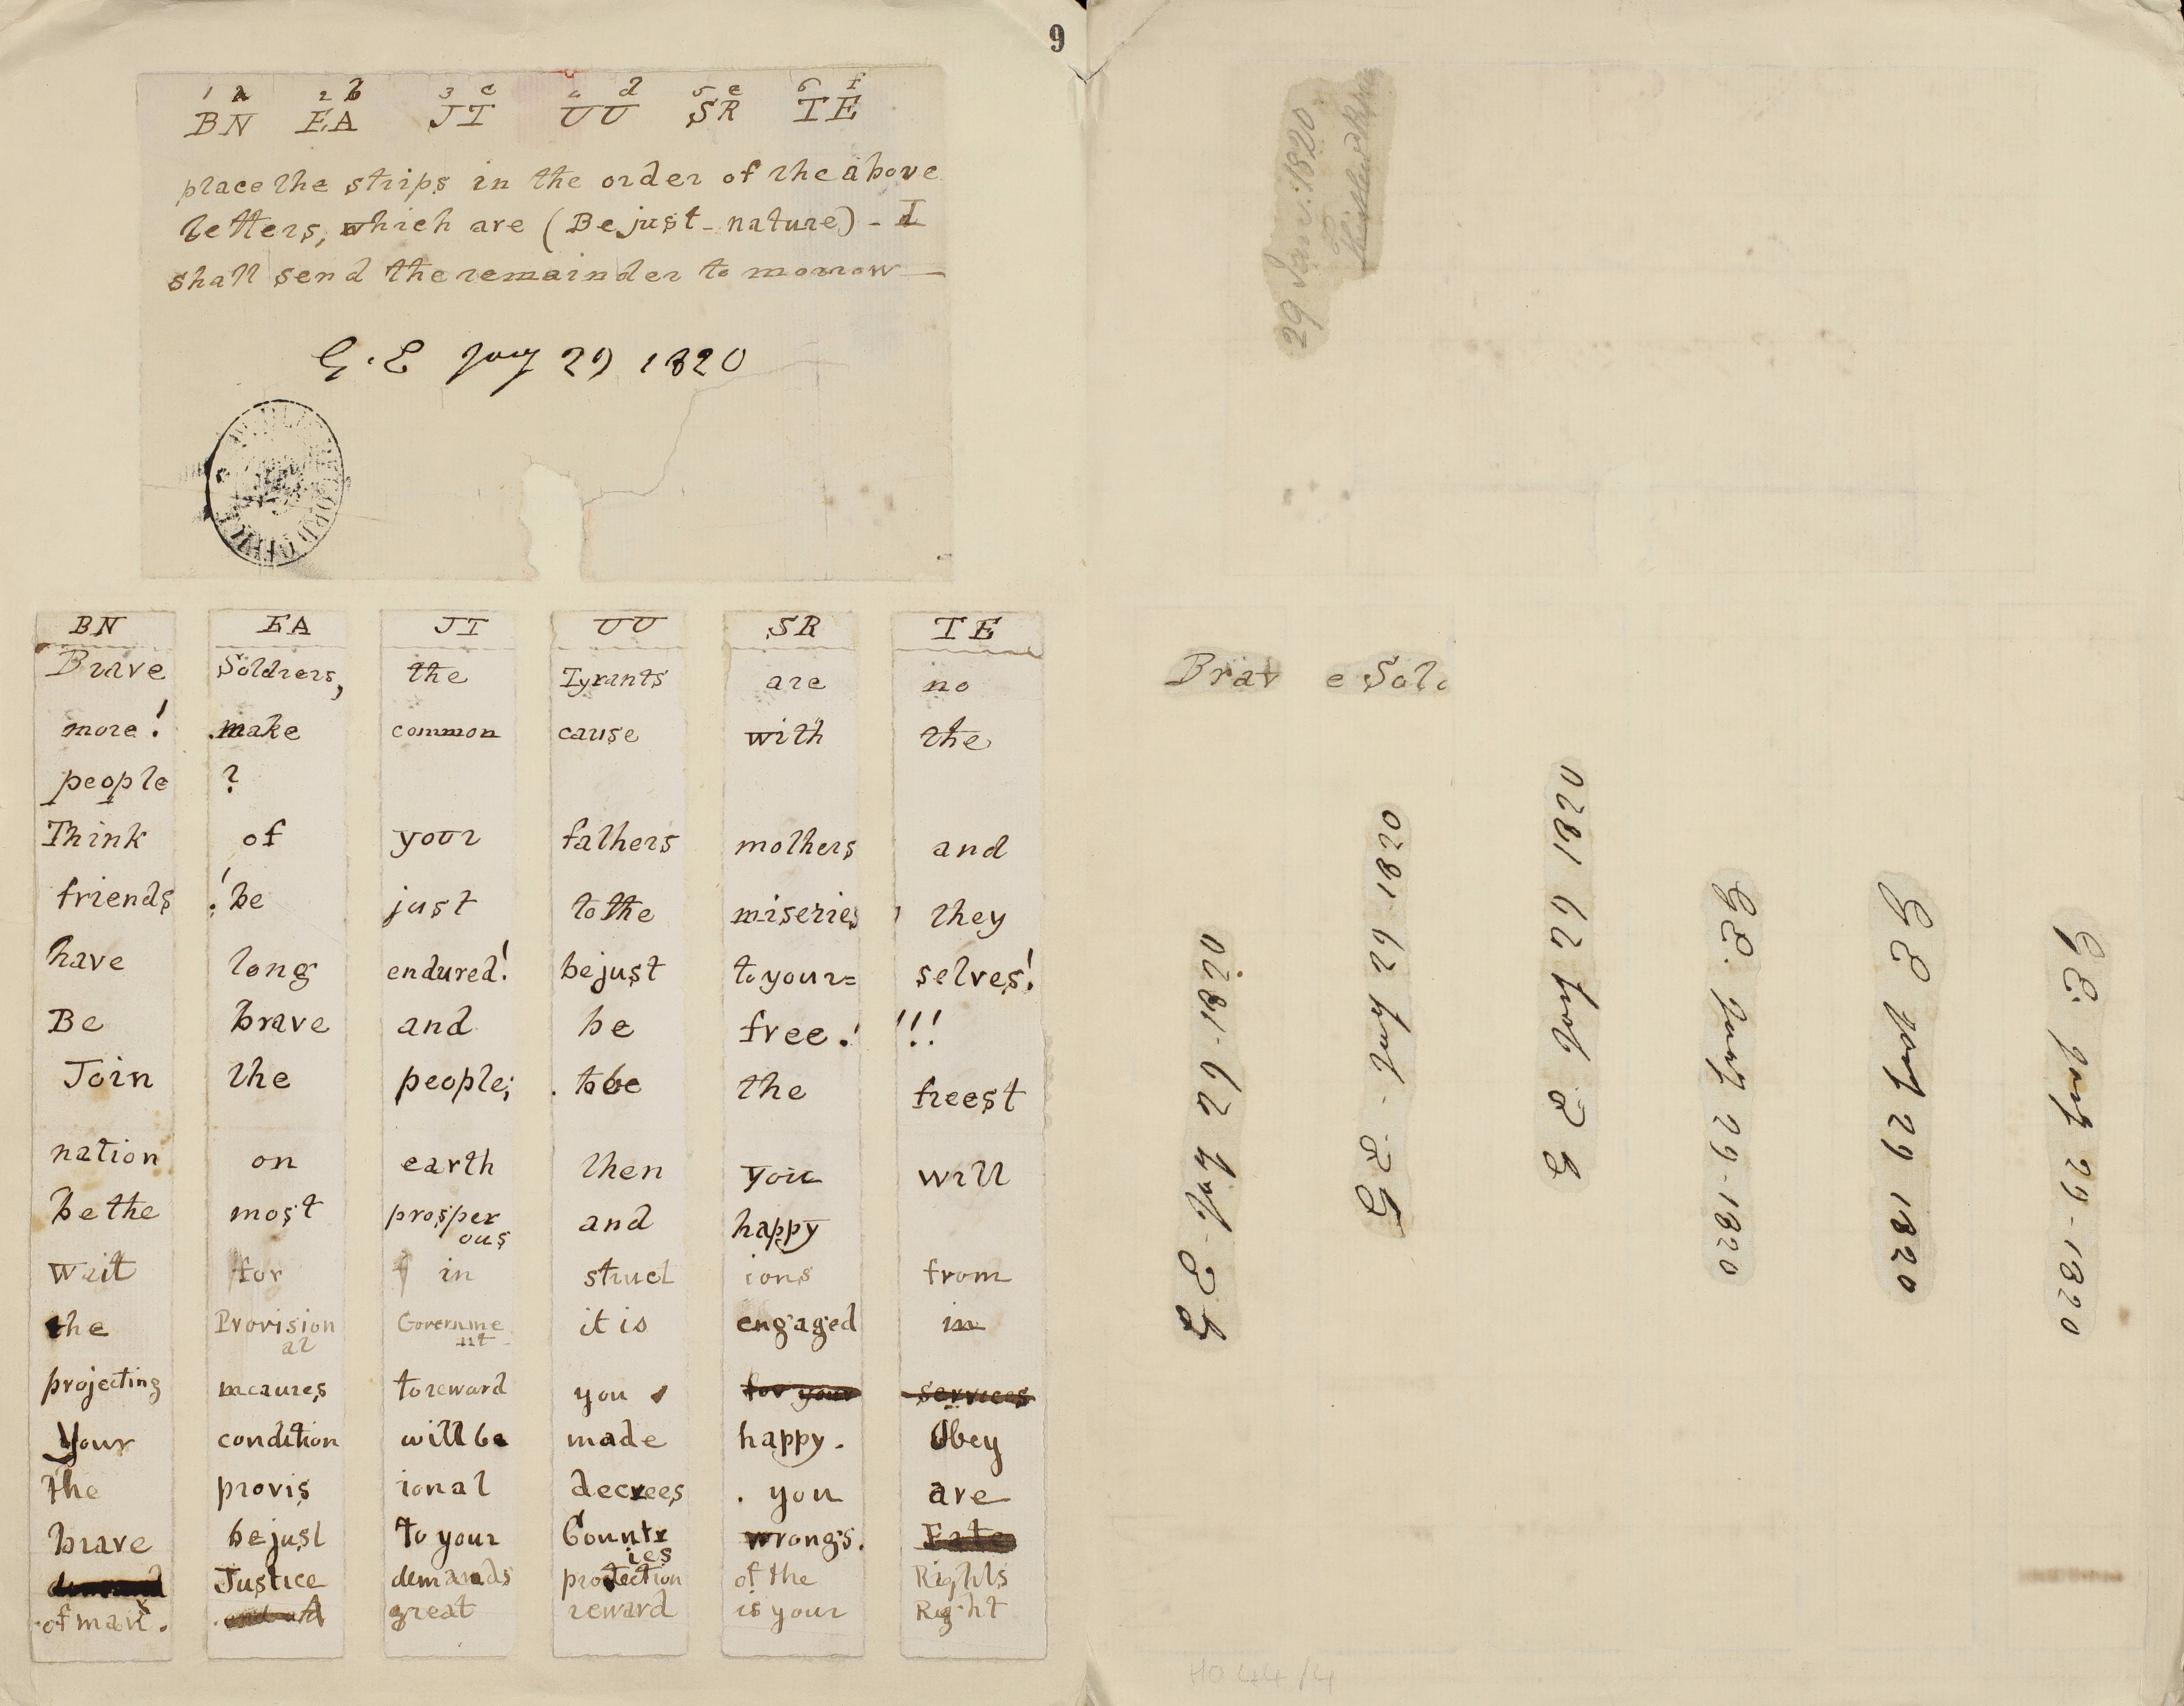 9
1 a 2 b 3 c 4 d 5 e 6 f
BN EA JT UU SR TE
place the strips in the order of the above
letters, which are (Be just - nature) - I
shall send the remainder to morrow
G. E Jany 29 1820
BN EA JT UU SR TE
Brave Soldiers, the Tyrants are no
more! make common cause with the
people ?
Think of your fathers mothers and
friends ! be just to the miseries they
have long endured! be just to your= selves!
Be brave and be free! !!!
Join the people; to be the freest
nation on earth then you will
be the most prosper ous and happy
Wait for in struct ions from
the Provision al Governme nt it is engaged in
projecting meaures to reward you for your services
Your condition will be made happy. Obey
the provis ional decrees . you are
brave be just to your Countr ies wrongs. Fate
demand Justice demands protection of the Rights
of man. great reward is your Right
29 Jan: 1820.
Thistlewood
Brav e Sold
G E - Jany 29 - 1820
G E - Jany 29 - 1820
G E Jany 29 1820
G E. Jany 29 - 1820
G E Jany 29 1820
G E. Jany 29 - 1820
HO 44/4